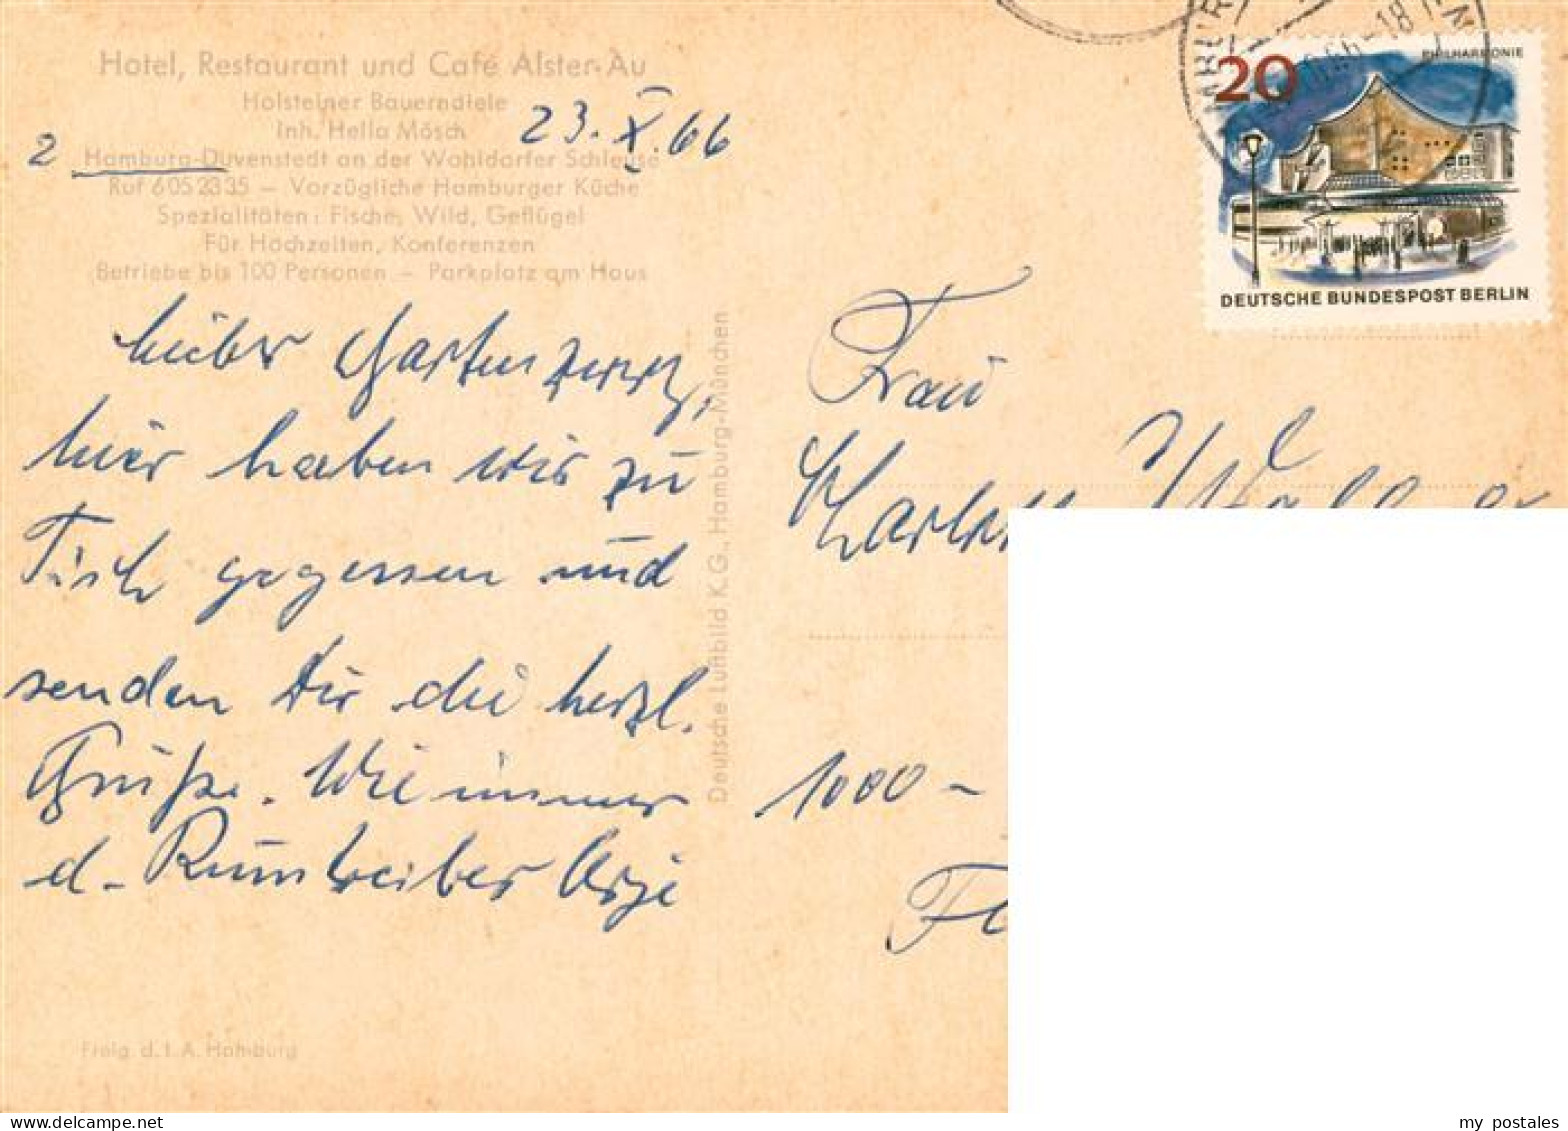 Hotel, Restaurant und Café Alster-Au
Holsteiner Bauerndiele
Inh. Hella Mösch
23. X. 66
2
Hamburg-Duvenstedt an der Wohldorfer Schleuse
Ruf 6052335 — Vorzügliche Hamburger Küche
Spezialitäten: Fische, Wild, Geflügel
Für Hochzeiten, Konferenzen
Betriebe bis 100 Personen — Parkplatz am Haus
Lieber Gartenzwerg,
hier haben wir zu
Tisch gegessen und
senden Dir die herzl.
Grüße. Wie immer
d.
Deutsche Luftbild K.G., Hamburg-München
Freig. d. L.A. Hamburg
20
PHILHARMONIE
DEUTSCHE BUNDESPOST BERLIN
-18
Frau
1000 -
my postales